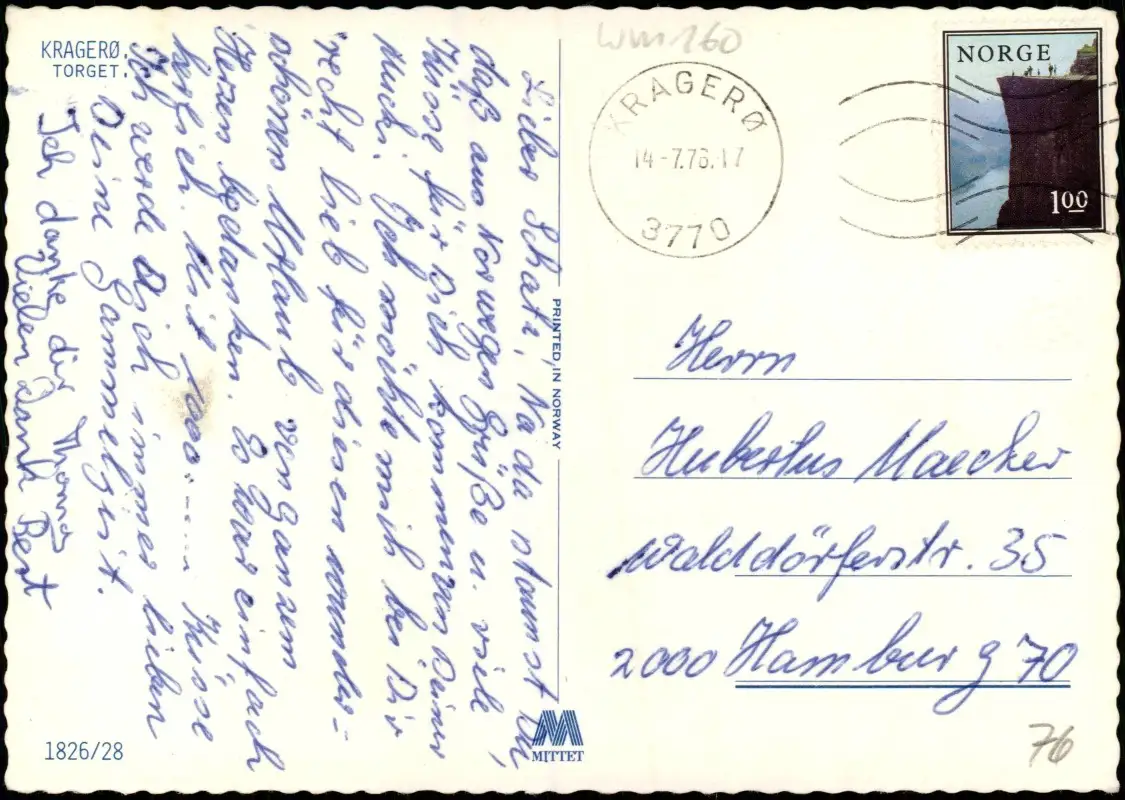 KRAGERØ.
TORGET.
Lieber Schati, Na da staunst Du,
daß aus Norwegen Grüße u. viele
Küsse für Dich kommen von Deiner
Muchi. Ich möchte mich bei Dir
recht lieb für diesen wunder-
schönen Urlaub von ganzem
Herzen bedanken. Es war einfach
herrlich. Mit 1000 ...... Küsse
Ich werde Dich immer lieben
Deine
Ich danke dir Thomas
Vielen Dank Bert
1826/28
PRINTED IN NORWAY
MITTET
WM 160
KRAGERØ
14-7.76.17
3770
NORGE
1.00
Herrn
Hubertus Maecker
Walddörferstr. 35
2000 Hamburg 70
76